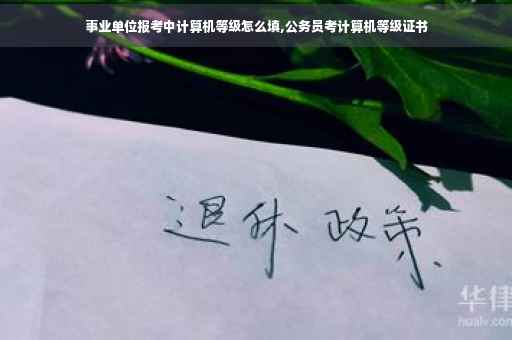 事业单位报考中计算机等级怎么填,公务员考计算机等级证书
退休 政策
华律
hualv.com